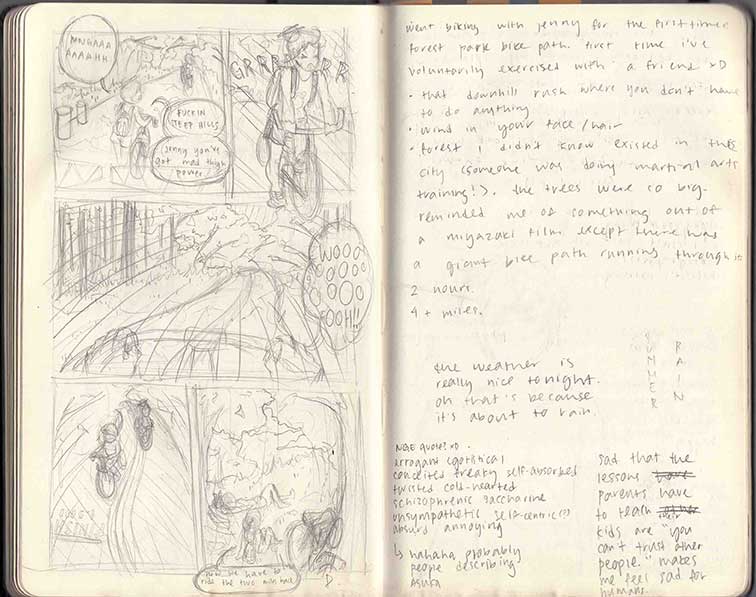 MNGAAA
AAAAHH
FUCKIN
STEEP HILLS
Jenny you've
got mad thigh
power
GRRR RR
WOOO
OOOO
OOOO
OOOH!!
now we have to
ride the two miles back
went biking with jenny for the first time.
forest park bike path. first time i've
voluntarily exercised with a friend xD
· that downhill rush where you don't have
to do anything
· wind in your face/hair
· forest i didn't know existed in this
city (someone was doing martial arts
training!). the trees were so big.
reminded me of something out of
a miyazaki film except there was
a giant bike path running through it
2 hours.
4+ miles.
SUMMER
RAIN
the weather is
really nice tonight.
oh that's because
it's about to rain.
NGE quotes xD.
arrogant egotistical
conceited freaky self-absorbed
twisted cold-hearted
schizophrenic saccharine
unsympathetic self-centric(?)
absurd annoying
↳ hahaha probably
people describing
asuka
sad that the
lessons have
parents have
to teach other their
kids are "you
can't trust other
people." makes
me feel sad for
humans.